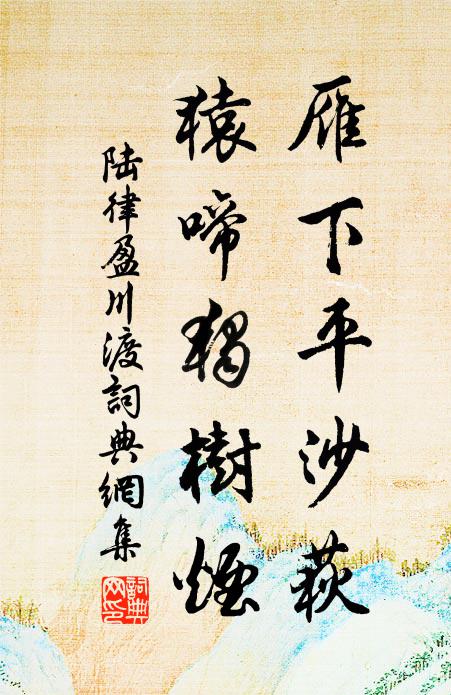 雁下平沙萩
猿啼獨樹煙
陆律盈川渡詞典網集
詞典网印